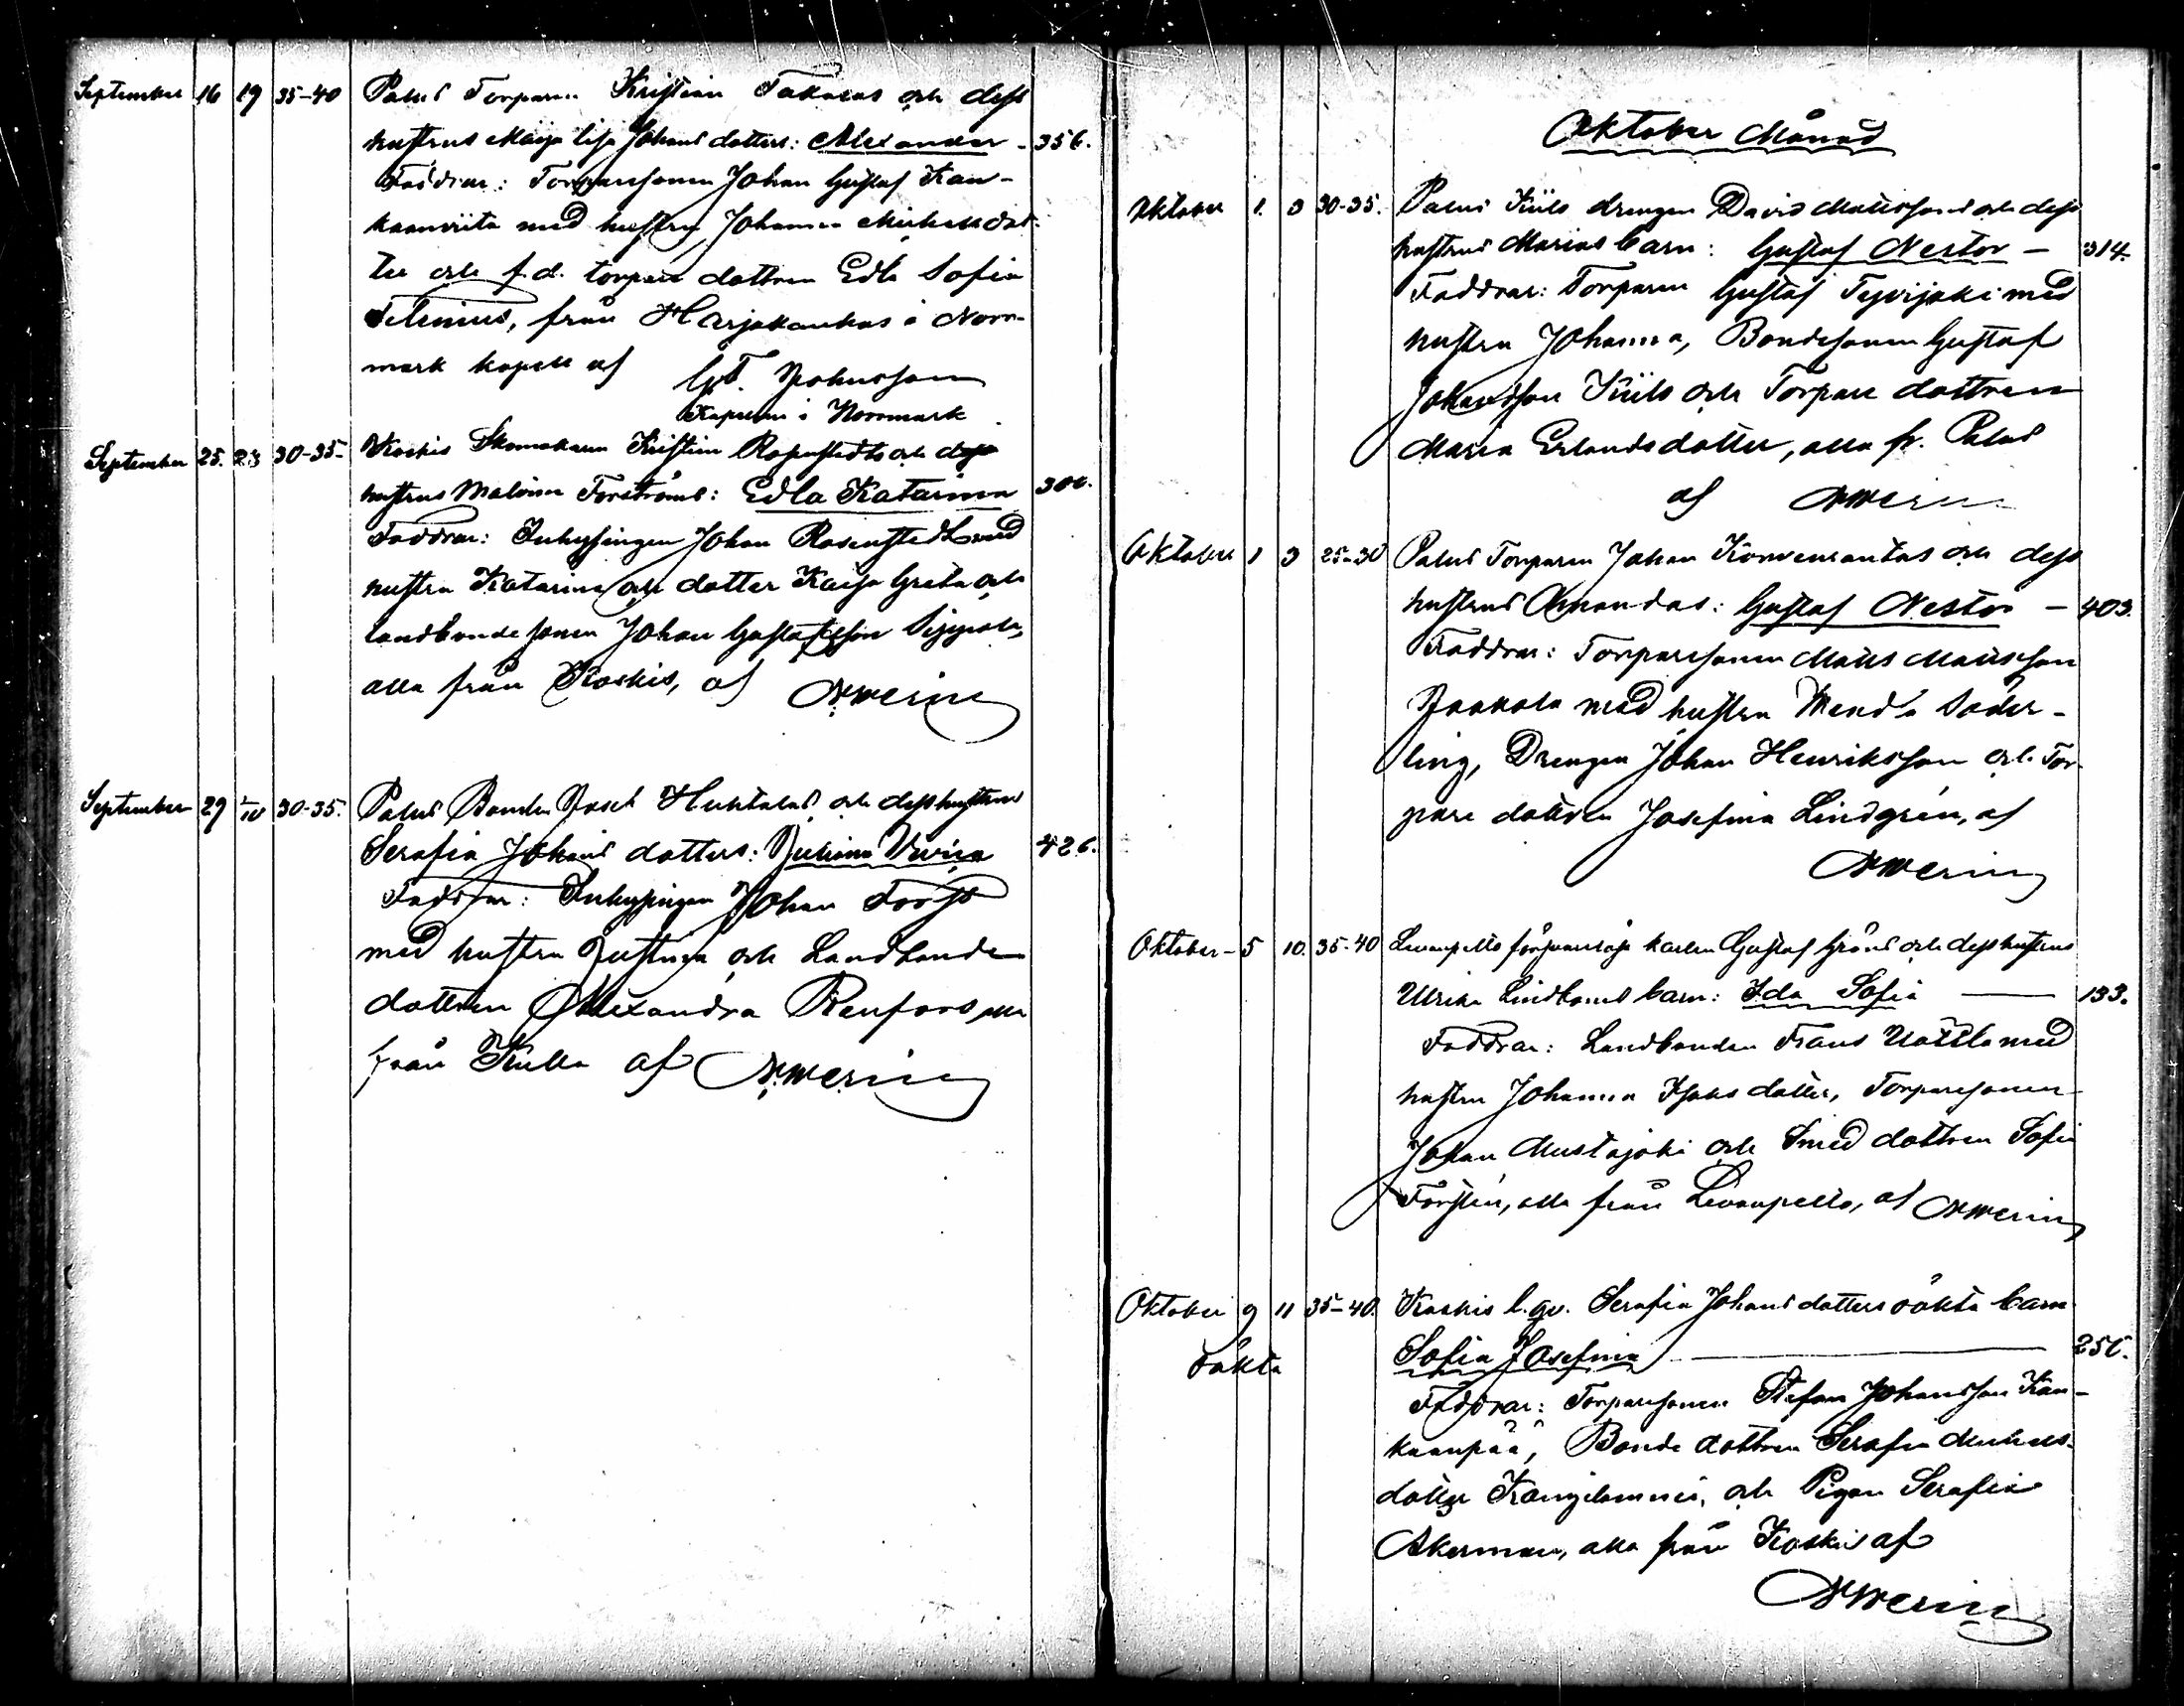 September 16 19 35-40 Palus Torparen Kristian Takalas och dess
hustrus Maija Lisa Johansdotters: Alexander - 356.
Faddrar: Torparesonen Johan Gustaf Kan-
kaanriita med hustru Johanna Michelsdot-
ter och f.d. torpare dottren Edla Sofia
från Harjakankas i Norr-
mark kapell af G.F. Johnsson
Kaplan i Norrmark
September 25. 28 30-35 Koskis Skomakaren Kristian Rosenstedts och dess
hustrus Malvina Forströms: Edla Katarina 300.
Faddrar: Inhysingen Johan Rosenstedt med
hustru Katarina och dotter Kaisa Greta och
landbondesonen Johan Gustafsson Seppälä,
alla från Koskis, af
September 29 30-35. Palus Bonden Josef Huhtalas och dess hustrus
Serafia Johans dotters: Juliana 426.
Faddrar: Inhysingen Johan Forss
med hustru Justina och Landbonde
dottren Alexandra Renfors, alla
från Kulla af
Oktober Månad
Oktober 1. 3 30-35. Palus drengen David Mattssons och dess
hustrus Marias barn: Gustaf Nestor - 314.
Faddrar: Torparen Gustaf med
hustru Johanna, Bondesonen Gustaf
Johansson och Torpare dottren
Maria Erlandsdotter, alla fr. Palus
af
Oktober 1 3 25-30 Palus Torparen Johan och dess
hustrus Amandas: Gustaf Nestor - 403.
Faddrar: Torparesonen Matts Mattsson
Jaakola med hustru Wenda Söder-
ling, Drengen Johan Henriksson och Tor-
pare dottren Josefina Lindgrén, af
Oktober - 5 10. 35-40 Levanpelto försvarslöse karlen Gustaf Gröns och dess hustrus
Ulrika Lindboms barn: Ida Sofia - 133.
Faddrar: Landbonden Frans med
hustru Johanna Isaksdotter, Torparesonen
Johan Mustajoki och Smed dottren Sofia
Forstén, alla från Levanpelto, af
Oktober 9 11 35-40. Koskis l. qv. Serafia Johansdotters oäkta barn
oäkta Sofia Josefina - 250.
Faddrar: Torparesonen Stefan Johansson Kan-
kaanpää, Bonde dottren Serafia Michels-
dotter och Pigan Serafia
Åkerman, alla från Koskis af